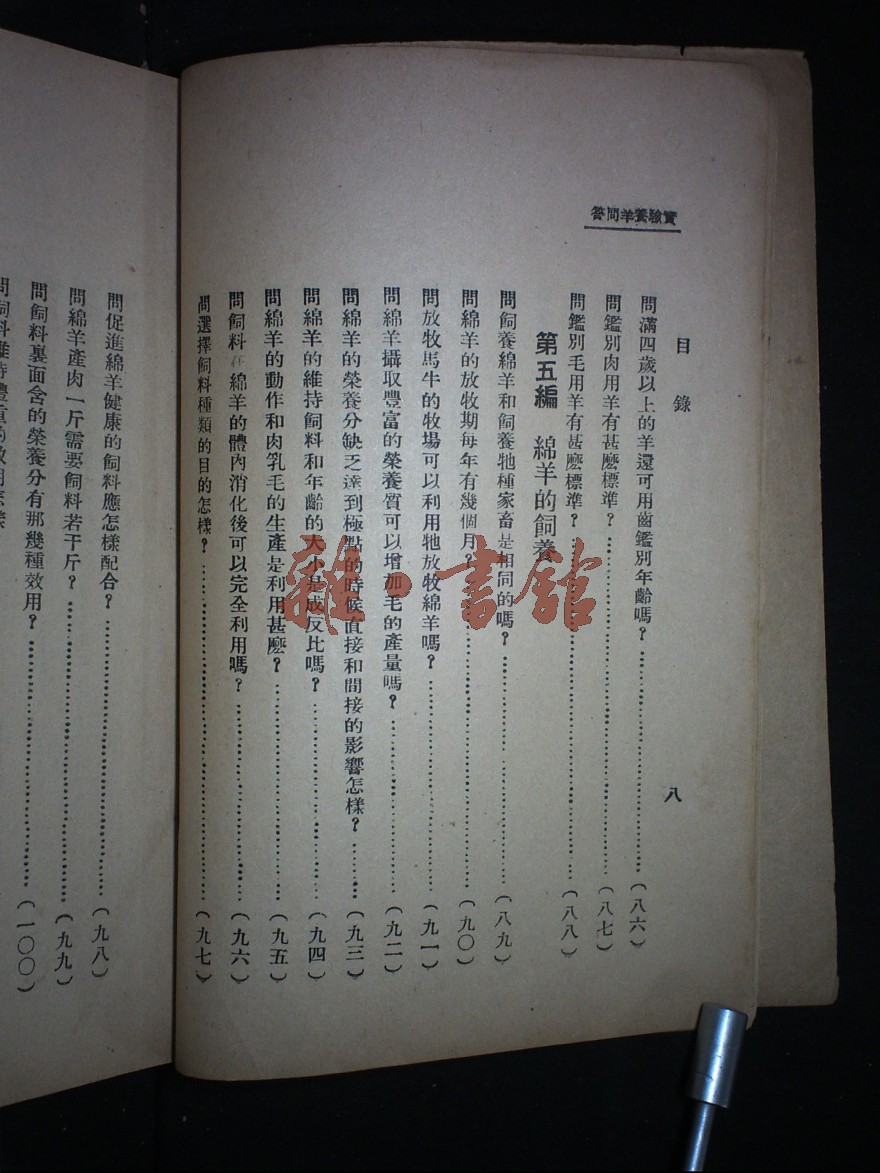 實驗養羊問答
目錄
八
問滿四歲以上的羊還可用齒鑑別年齡嗎？……（八六）
問鑑別肉用羊有甚麽標準？……（八七）
問鑑別毛用羊有甚麽標準？……（八八）
第五編　綿羊的飼養
問飼養綿羊和飼養牠種家畜是相同的嗎？……（八九）
問綿羊的放牧期每年有幾個月？……（九〇）
問放牧馬牛的牧場可以利用牠放牧綿羊嗎？……（九一）
問綿羊攝取豐富的榮養質可以增加毛的產量嗎？……（九二）
問綿羊的榮養分缺乏達到極點的時候直接和間接的影響怎樣？……（九三）
問綿羊的維持飼料和年齡的大小是成反比嗎？……（九四）
問綿羊的動作和肉乳毛的生產是利用甚麽？……（九五）
問飼料在綿羊的體內消化後可以完全利用嗎？……（九六）
問選擇飼料種類的目的怎樣？……（九七）
問促進綿羊健康的飼料應怎樣配合？……（九八）
問綿羊產肉一斤需要飼料若干斤？……（九九）
問飼料裏面含的榮養分有那幾種效用？……（一〇〇）
雜·書舘